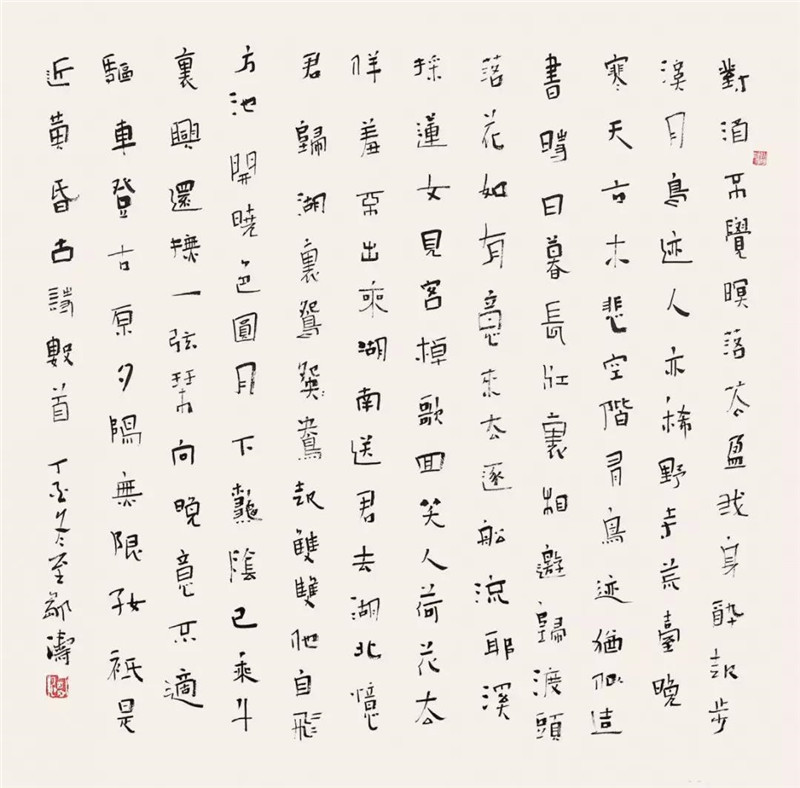 對酒不覺暝落花盈我身醉起步
溪月鳥迹人亦稀野寺荒臺晚
寒天古木悲空階有鳥迹猶似造
書時日暮長江裏相邀歸渡頭
落花如有意來去逐船流耶溪
採蓮女見客棹歌回笑入荷花去
佯羞不出來湖南送君去湖北憶
君歸湖裏鴛鴦起雙雙他自飛
方池開曉色圓月下秋陰已乘千
裏興還撫一弦琴向晚意不適
驅車登古原夕陽無限好祇是
近黃昏古詩數首 丁酉冬至鄒濤